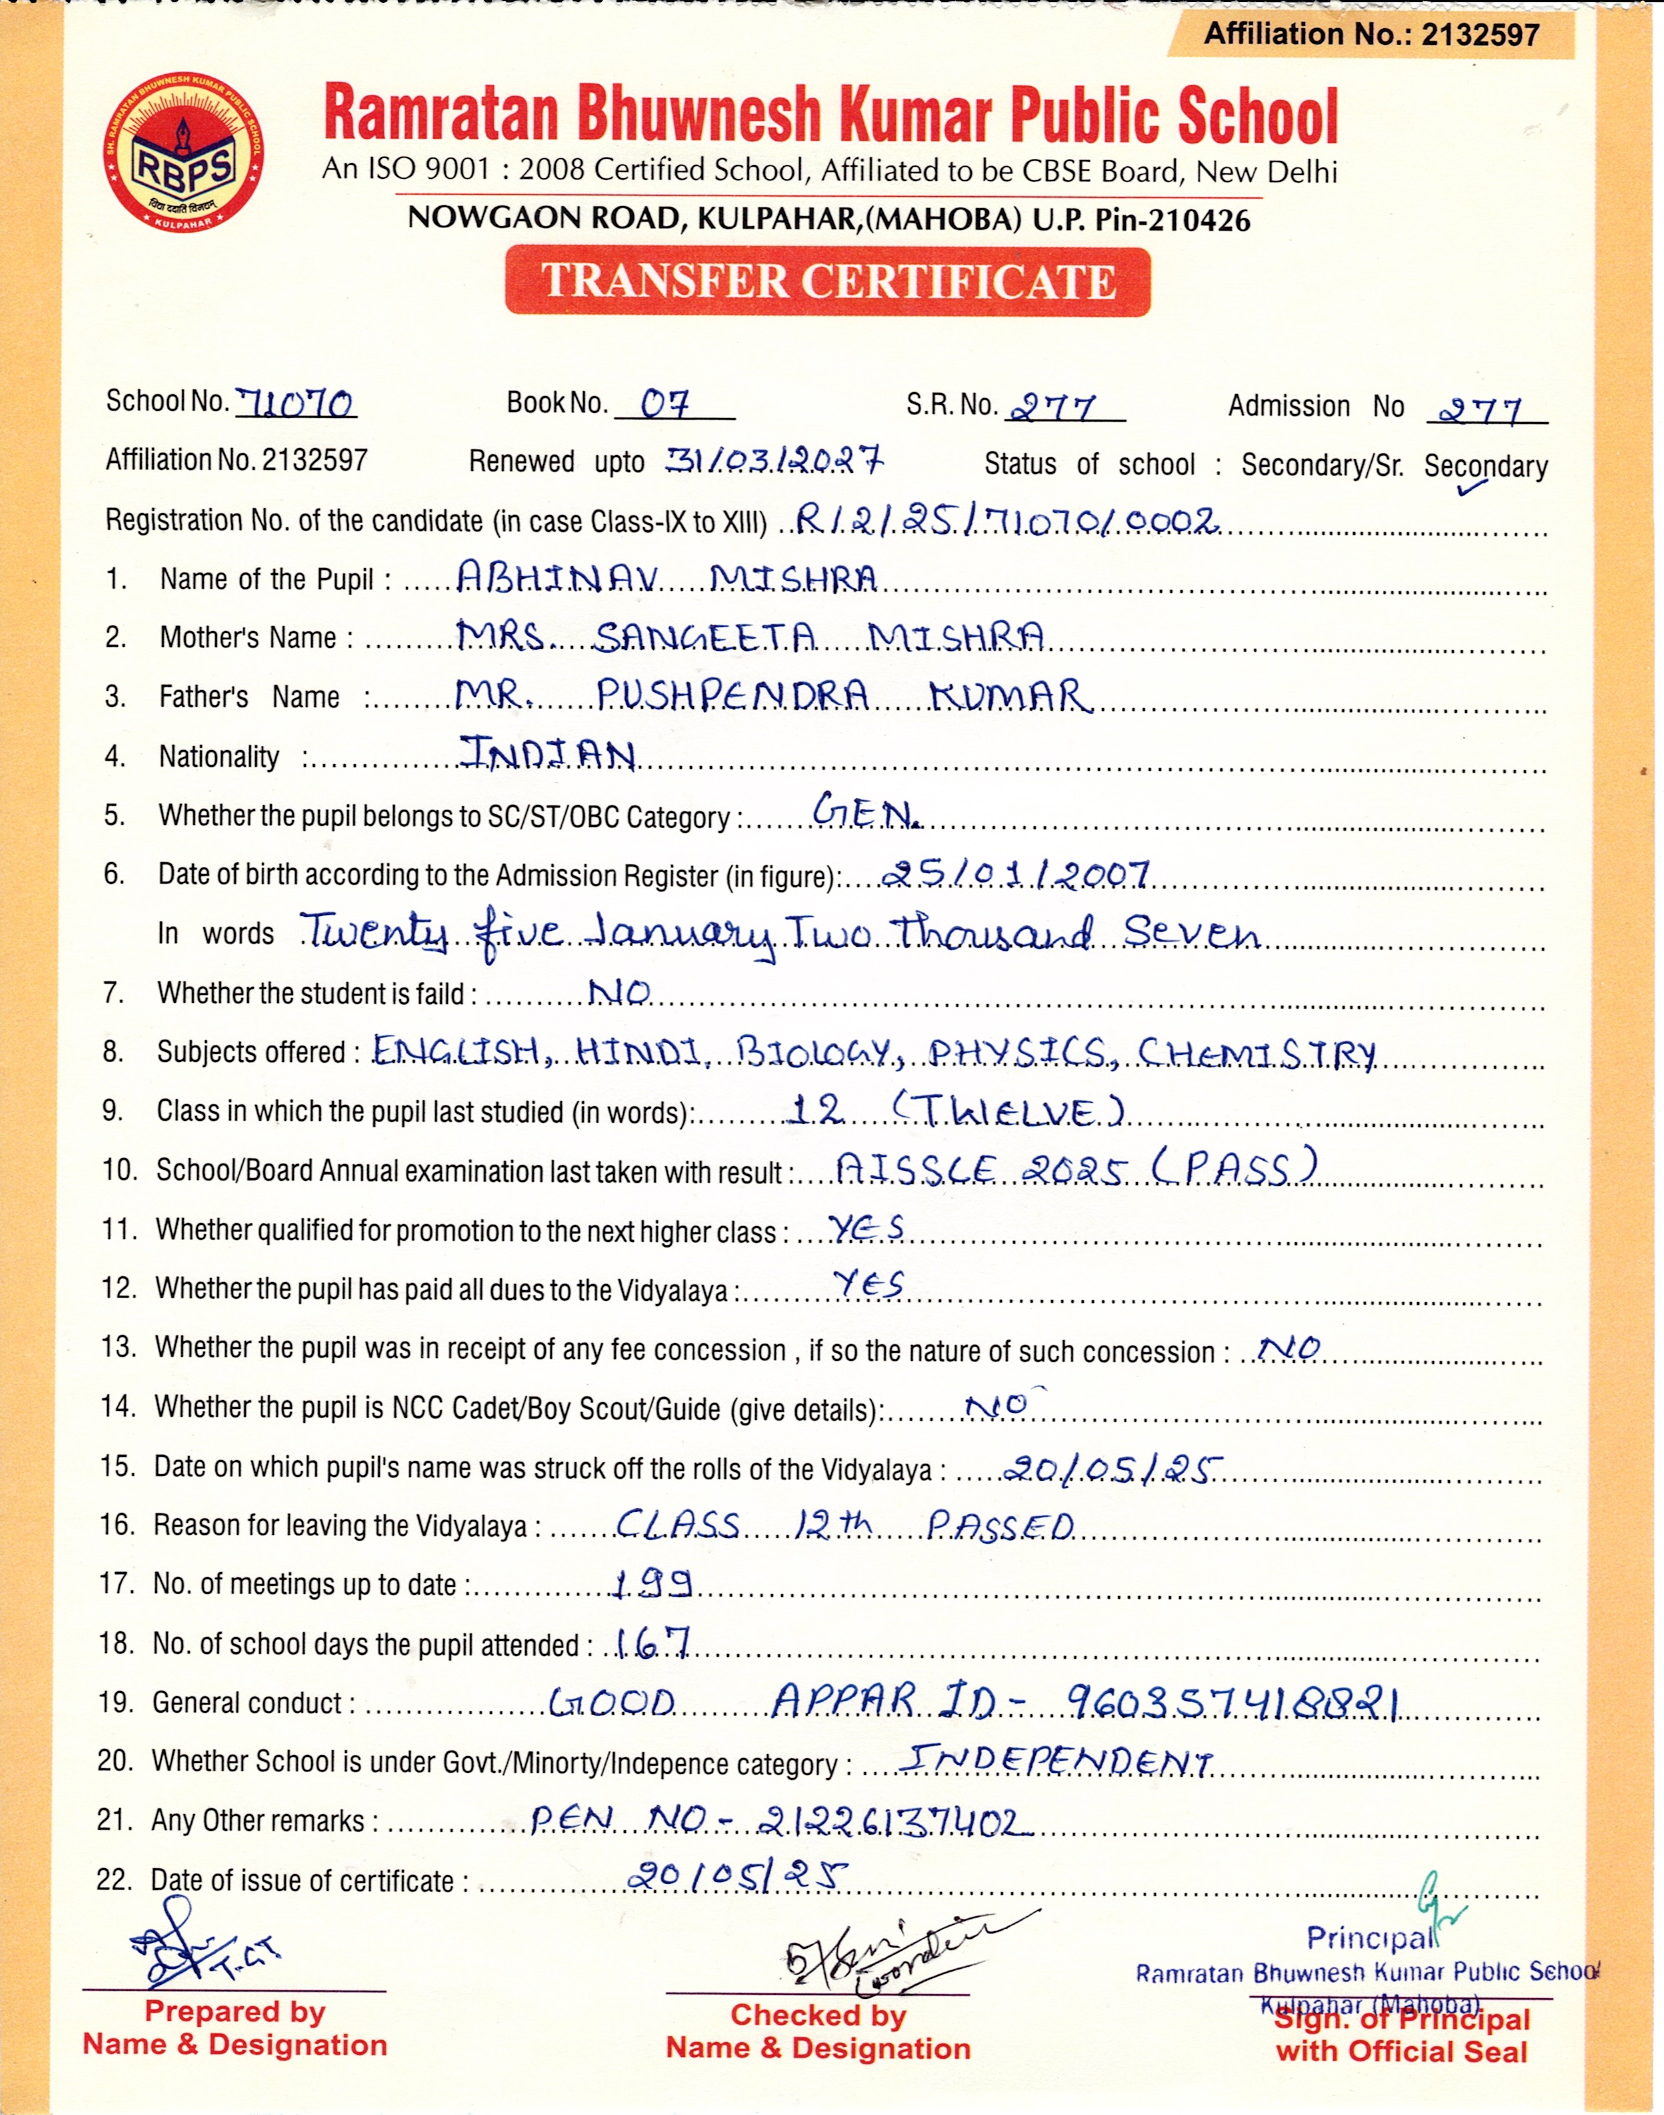 Affiliation No.: 2132597
SH. RAMRATAN BHUWNESH KUMAR PUBLIC SCHOOL
RBPS
विद्या ददाति विनयम्
KULPAHAR
Ramratan Bhuwnesh Kumar Public School
An ISO 9001 : 2008 Certified School, Affiliated to be CBSE Board, New Delhi
NOWGAON ROAD, KULPAHAR,(MAHOBA) U.P. Pin-210426
TRANSFER CERTIFICATE
School No. 71070 Book No. 07 S.R. No. 277 Admission No 277
Affiliation No. 2132597 Renewed upto 31/03/2027 Status of school : Secondary/Sr. Secondary
Registration No. of the candidate (in case Class-IX to XIII) R/2/25/71070/0002
1. Name of the Pupil : ABHINAV MISHRA
2. Mother's Name : MRS. SANGEETA MISHRA
3. Father's Name : MR. PUSHPENDRA KUMAR
4. Nationality : INDIAN
5. Whether the pupil belongs to SC/ST/OBC Category : GEN.
6. Date of birth according to the Admission Register (in figure): 25/01/2007
In words Twenty five January Two thousand Seven
7. Whether the student is faild : NO
8. Subjects offered : ENGLISH, HINDI, BIOLOGY, PHYSICS, CHEMISTRY
9. Class in which the pupil last studied (in words): 12 (TWELVE)
10. School/Board Annual examination last taken with result : AISSCE 2025 (PASS)
11. Whether qualified for promotion to the next higher class : YES
12. Whether the pupil has paid all dues to the Vidyalaya : YES
13. Whether the pupil was in receipt of any fee concession , if so the nature of such concession : NO
14. Whether the pupil is NCC Cadet/Boy Scout/Guide (give details): NO
15. Date on which pupil's name was struck off the rolls of the Vidyalaya : 20/05/25
16. Reason for leaving the Vidyalaya : CLASS 12th PASSED
17. No. of meetings up to date : 199
18. No. of school days the pupil attended : 167
19. General conduct : GOOD APPAR ID- 960357418821
20. Whether School is under Govt./Minorty/Indepence category : INDEPENDENT
21. Any Other remarks : PEN NO- 21226137402
22. Date of issue of certificate : 20/05/25
T.G.T.
Principal
Ramratan Bhuwnesh Kumar Public School
Kulpahar (Mahoba)
Prepared by Checked by Sign. of Principal
Name & Designation Name & Designation with Official Seal